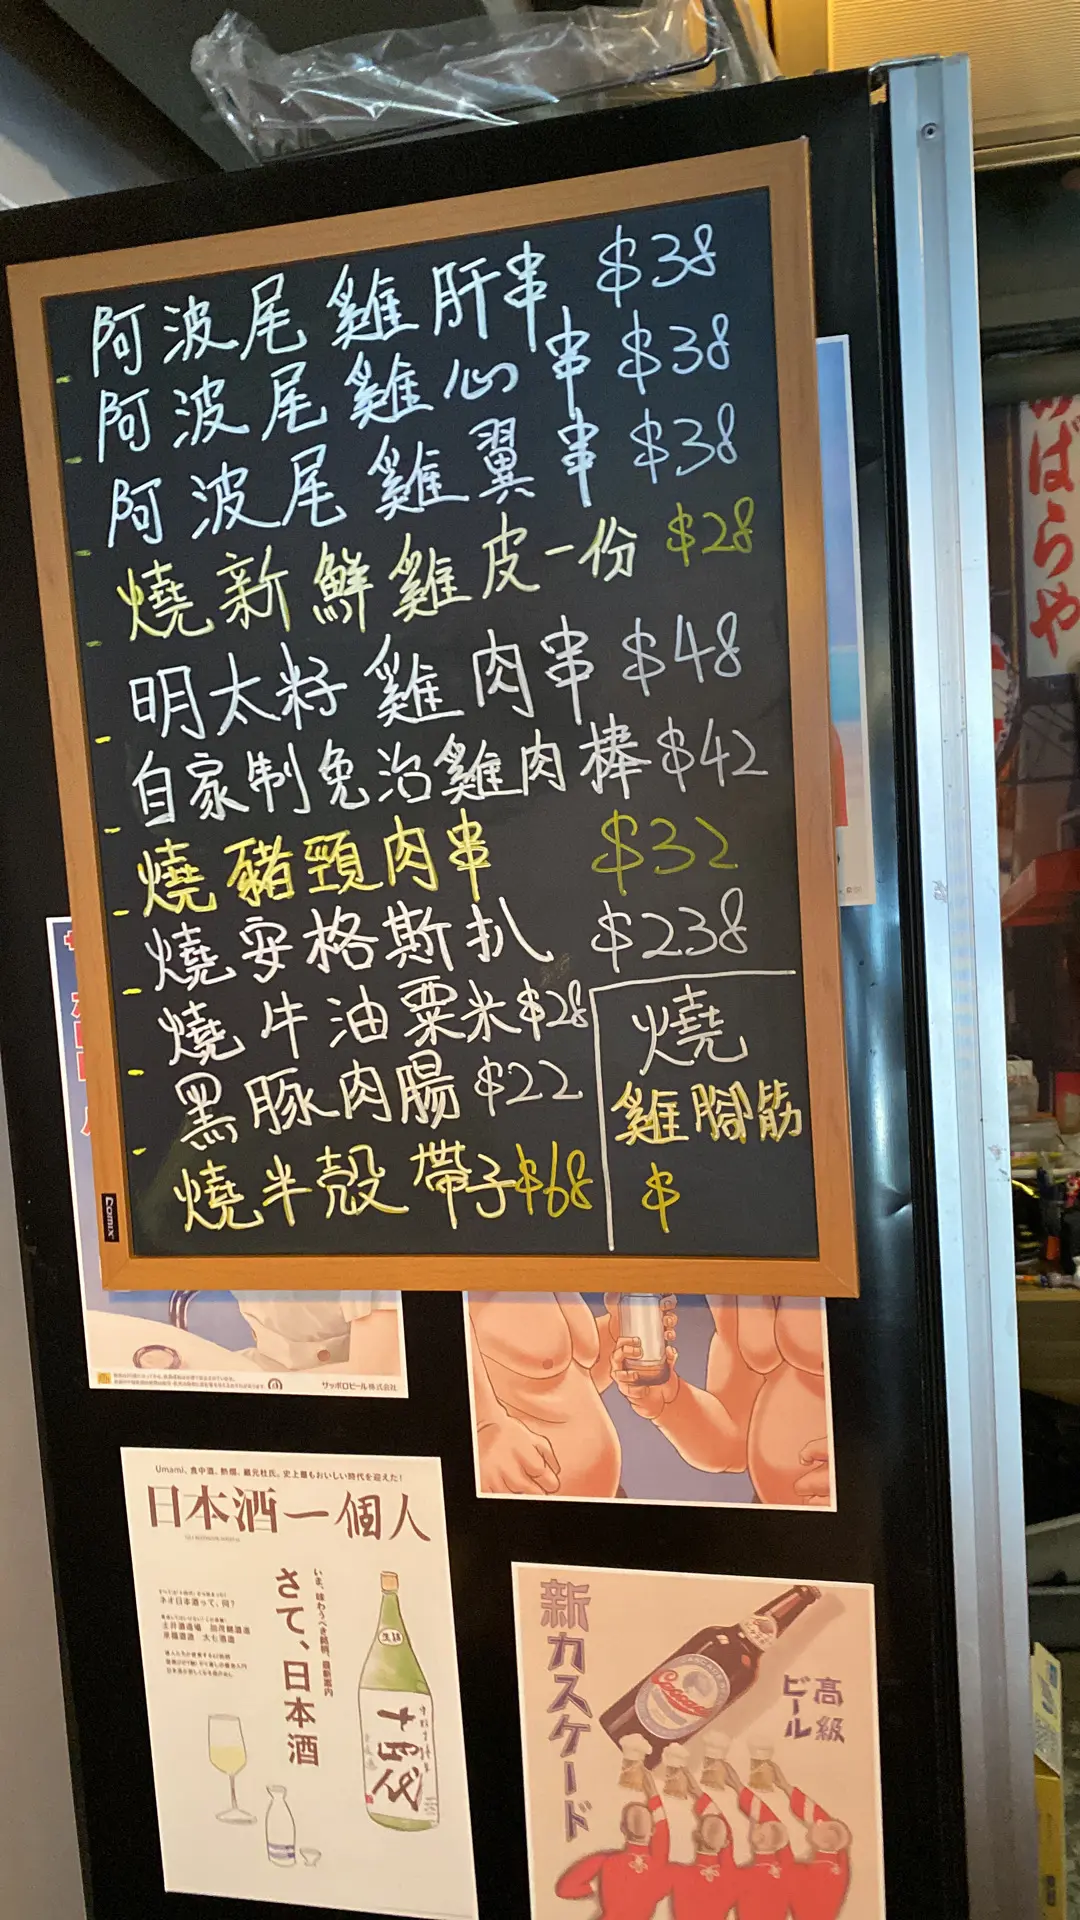 阿波尾雞肝串 $38
阿波尾雞心串 $38
阿波尾雞翼串 $38
燒新鮮雞皮一份 $28
明太籽雞肉串 $48
自家制免治雞肉棒 $42
燒豬頸肉串 $32
燒安格斯扒 $238
燒牛油粟米 $28
黑豚肉腸 $22
燒半殼帶子 $68
燒
雞腳筋
串
Comix
ばらや
サッポロビール株式会社
Umami、食中酒、熱燗、蔵元杜氏。史上最もおいしい時代を迎えた!
日本酒一個人
いま、味わうべき銘柄、最新案内
さて、日本酒
ネオ日本酒って、何?
生詰
十四代
新カスケード
高級
ビール